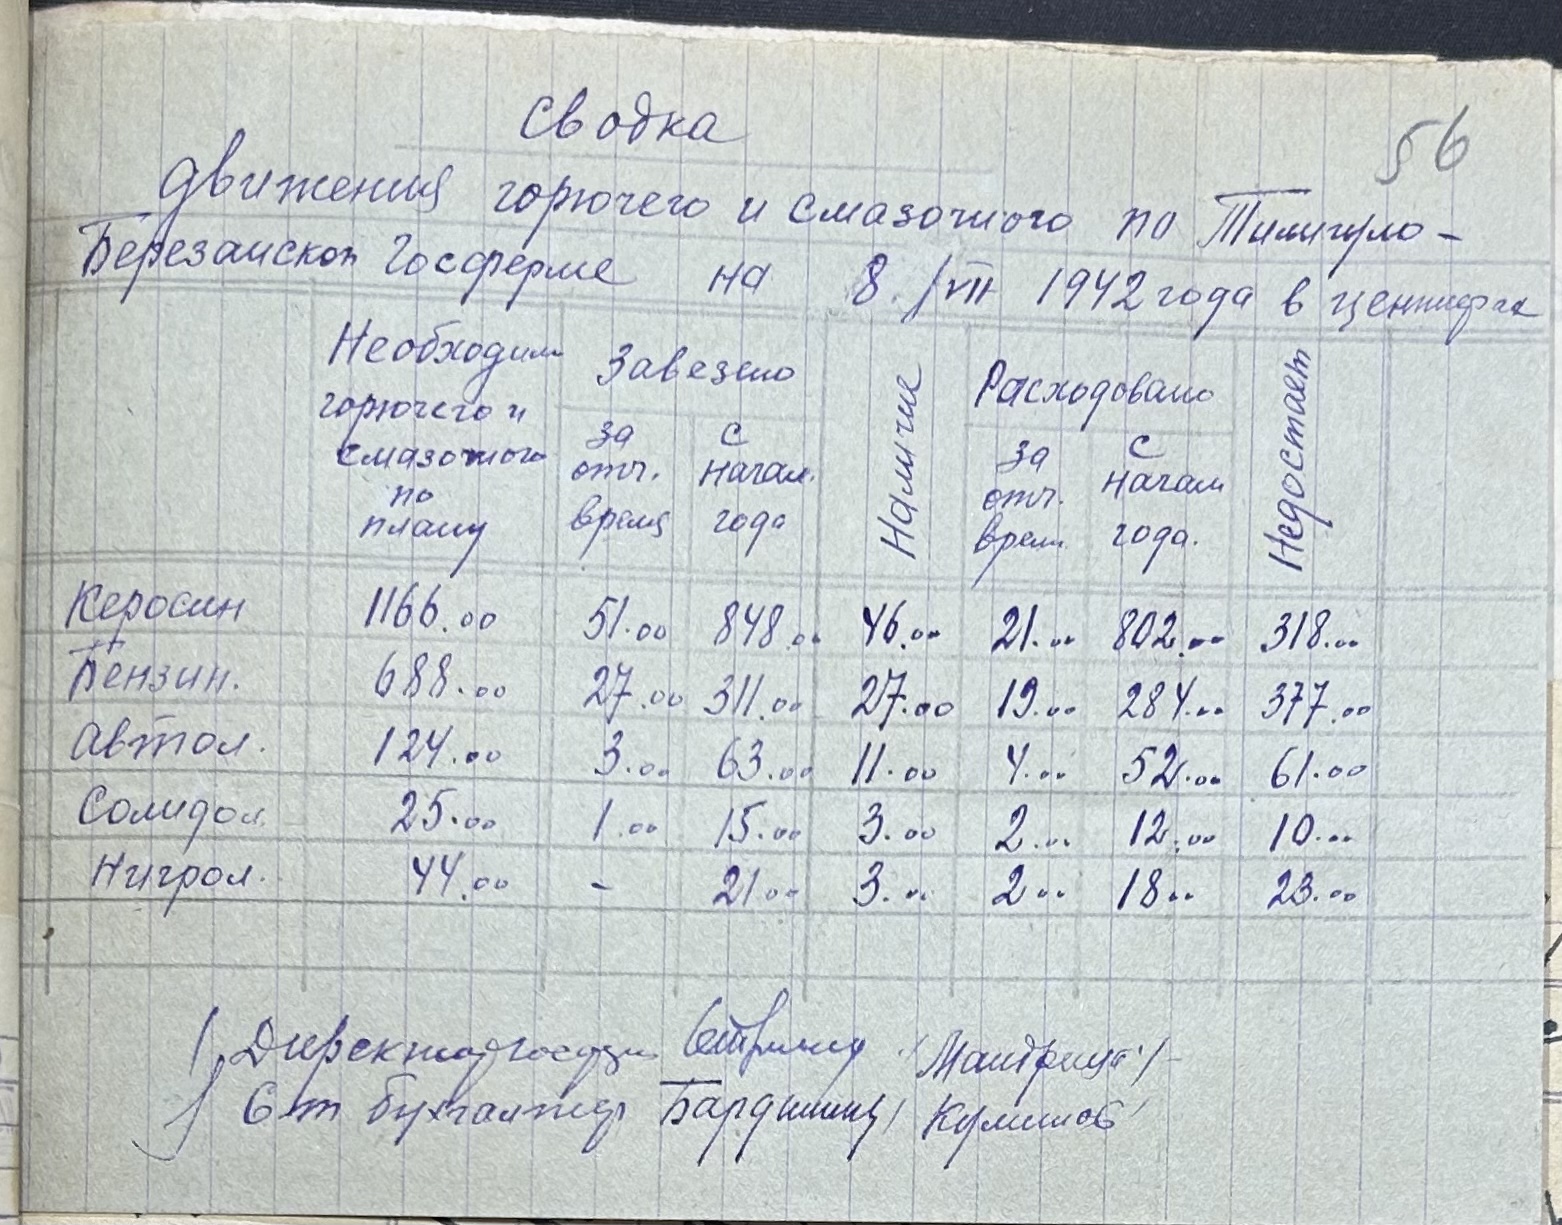 Сводка
56
движения горючего и смазочного по Тилигуло-
Березанской Госферме на 8/VII 1942 года в центнерах
Необходим горючего и смазочного по плану
Завезено
Наличие
Расходовано
Недостает
за отч. время
с начал. года
за отч. врем.
с начал года.
Керосин 1166.00 51.00 848.00 46.00 21.00 802.00 318.00
Бензин. 688.00 27.00 311.00 27.00 19.00 284.00 377.00
Автол. 124.00 3.00 63.00 11.00 4.00 52.00 61.00
Солидол. 25.00 1.00 15.00 3.00 2.00 12.00 10.00
Нигрол. 44.00 - 21.00 3.00 2.00 18.00 23.00
Директор госфер.
Ст бухгалтер